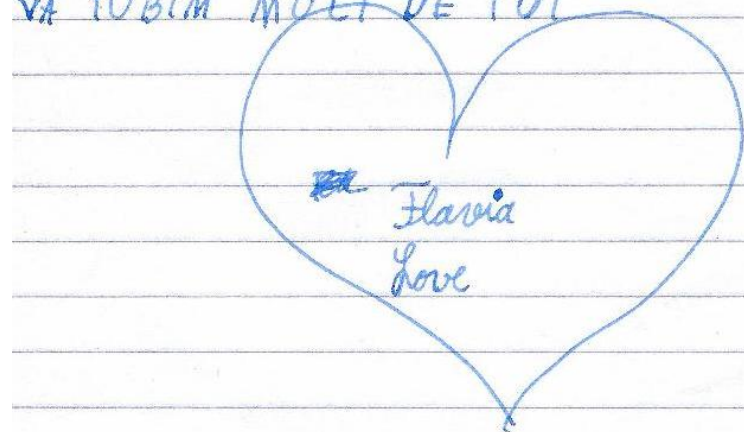 VA IUBIM MULT DE TOT
Flavia
Love